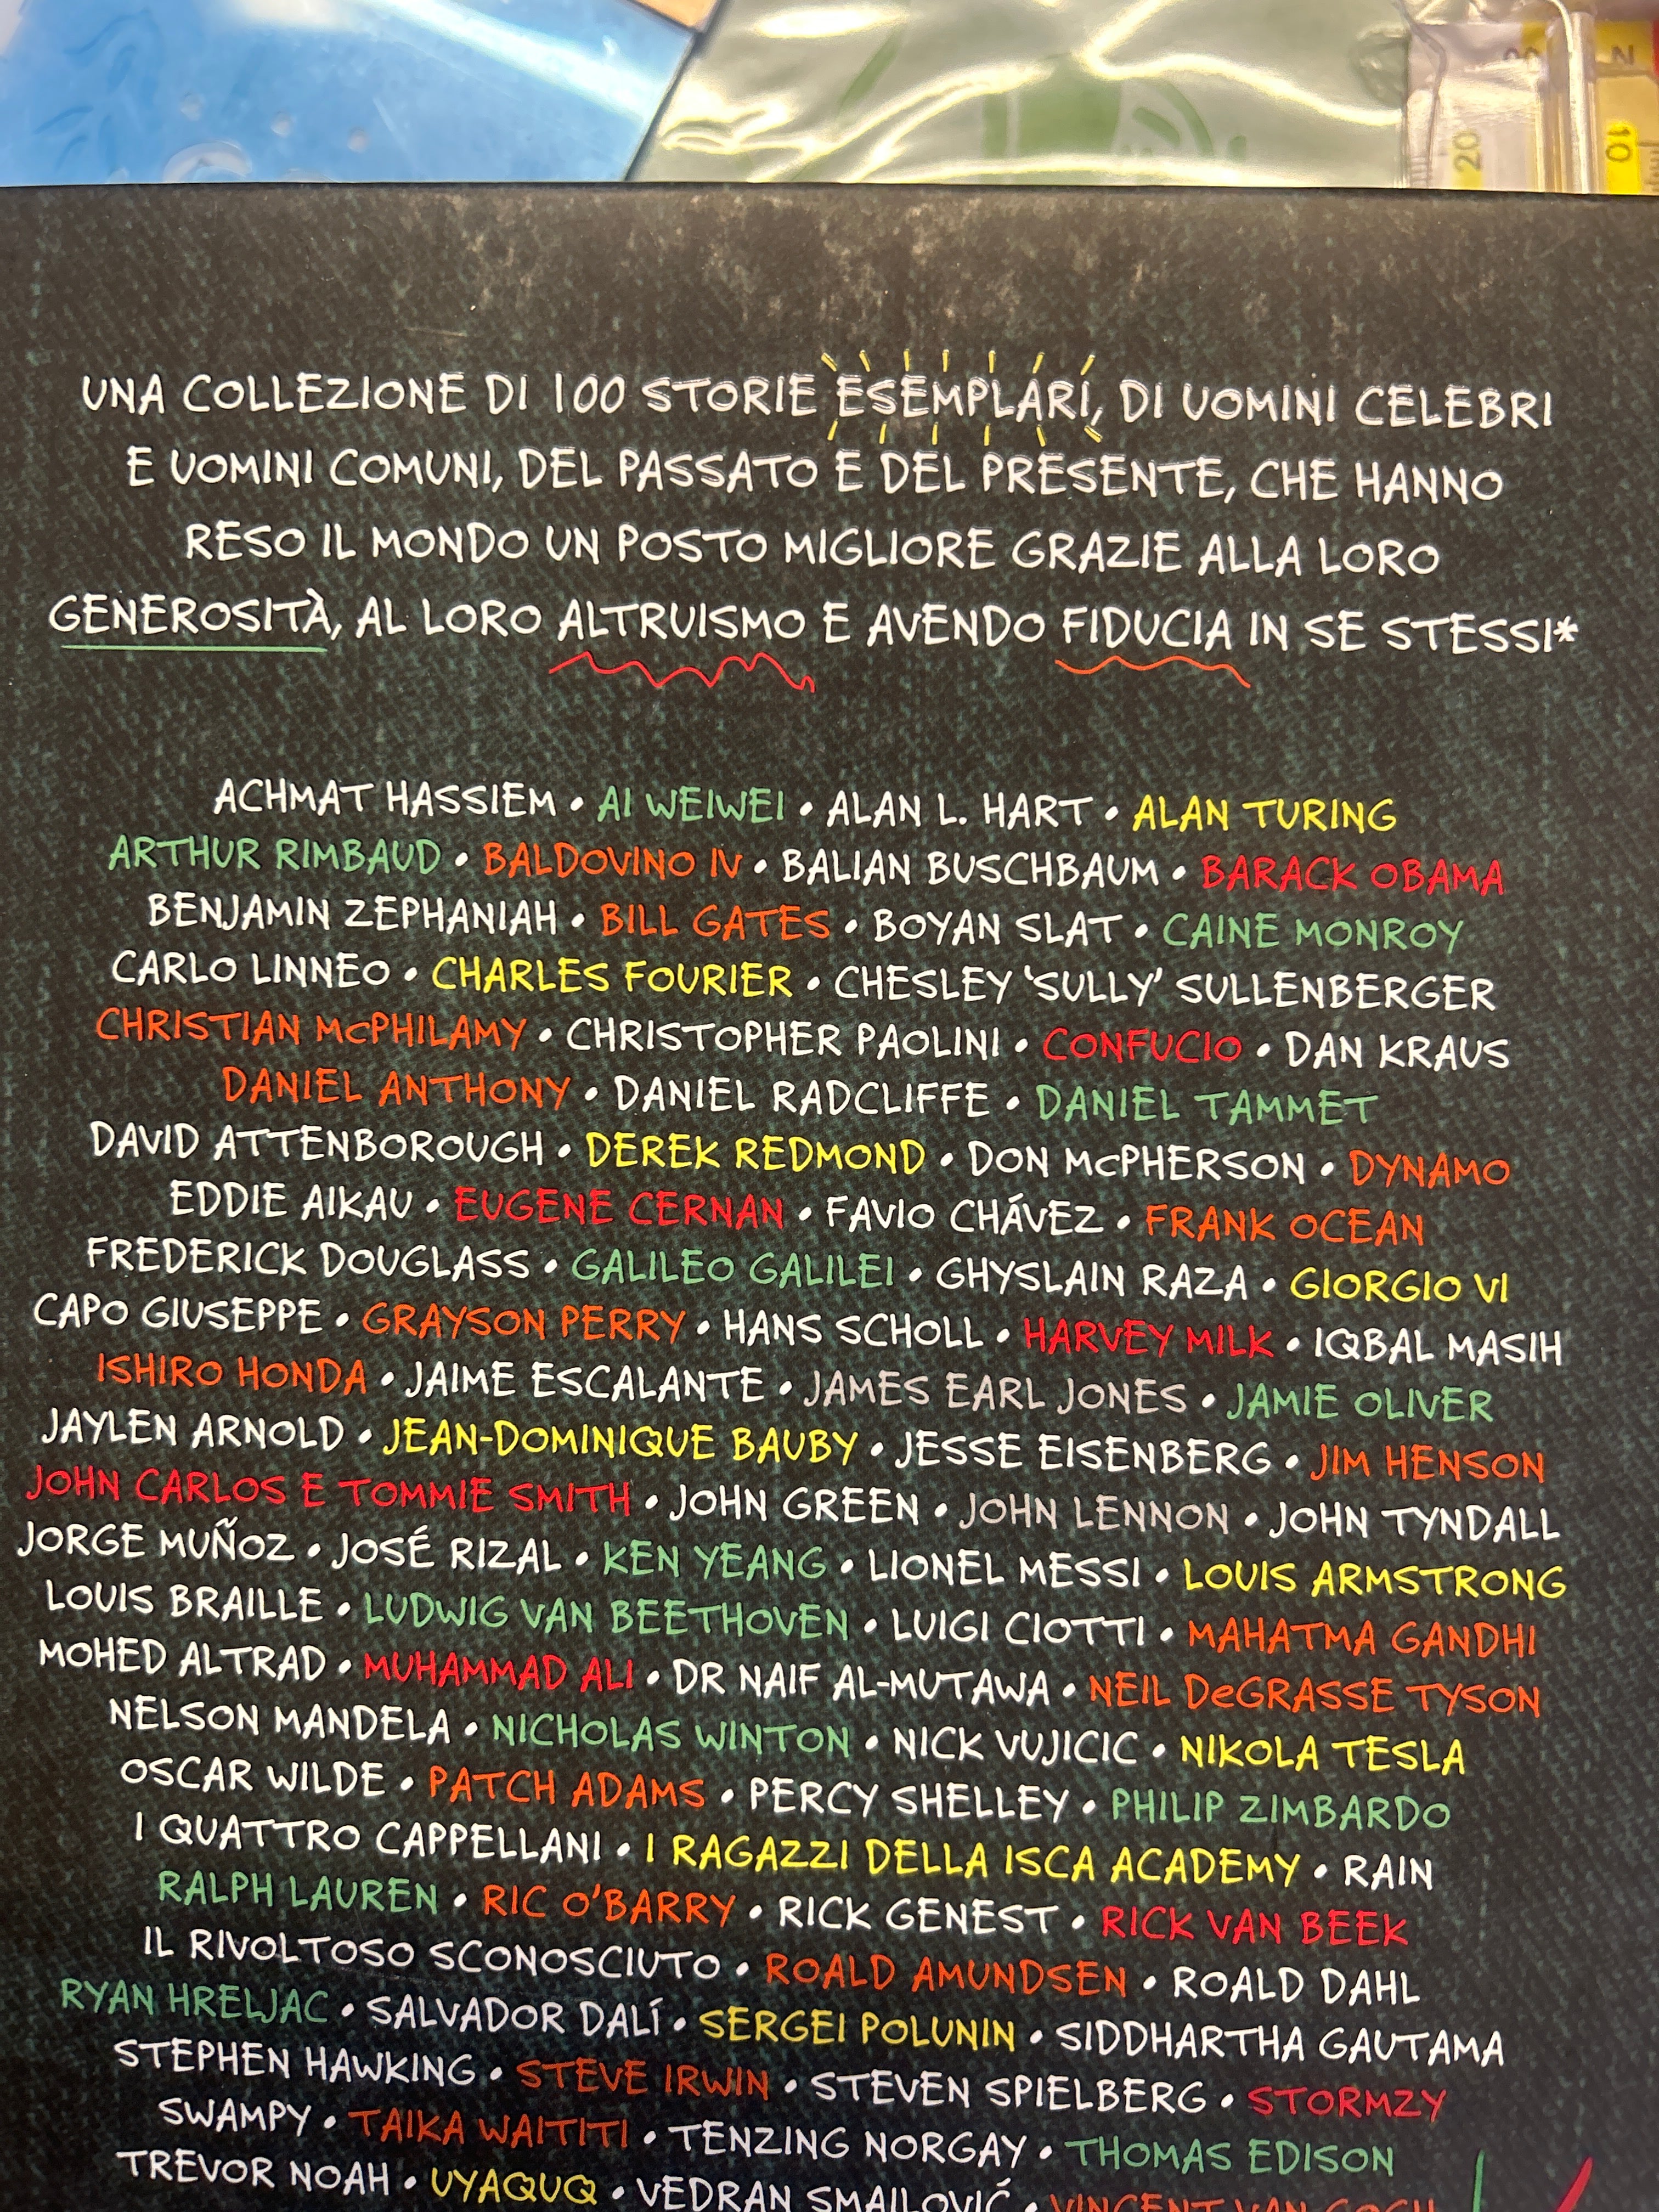 20
10
UNA COLLEZIONE DI 100 STORIE ESEMPLARI, DI UOMINI CELEBRI
E UOMINI COMUNI, DEL PASSATO E DEL PRESENTE, CHE HANNO
RESO IL MONDO UN POSTO MIGLIORE GRAZIE ALLA LORO
GENEROSITÀ, AL LORO ALTRUISMO E AVENDO FIDUCIA IN SE STESSI*
ACHMAT HASSIEM • AI WEIWEI • ALAN L. HART • ALAN TURING
ARTHUR RIMBAUD • BALDOVINO IV • BALIAN BUSCHBAUM • BARACK OBAMA
BENJAMIN ZEPHANIAH • BILL GATES • BOYAN SLAT • CAINE MONROY
CARLO LINNEO • CHARLES FOURIER • CHESLEY 'SULLY' SULLENBERGER
CHRISTIAN McPHILAMY • CHRISTOPHER PAOLINI • CONFUCIO • DAN KRAUS
DANIEL ANTHONY • DANIEL RADCLIFFE • DANIEL TAMMET
DAVID ATTENBOROUGH • DEREK REDMOND • DON McPHERSON • DYNAMO
EDDIE AIKAU • EUGENE CERNAN • FAVIO CHÁVEZ • FRANK OCEAN
FREDERICK DOUGLASS • GALILEO GALILEI • GHYSLAIN RAZA • GIORGIO VI
CAPO GIUSEPPE • GRAYSON PERRY • HANS SCHOLL • HARVEY MILK • IQBAL MASIH
ISHIRO HONDA • JAIME ESCALANTE • JAMES EARL JONES • JAMIE OLIVER
JAYLEN ARNOLD • JEAN-DOMINIQUE BAUBY • JESSE EISENBERG • JIM HENSON
JOHN CARLOS E TOMMIE SMITH • JOHN GREEN • JOHN LENNON • JOHN TYNDALL
JORGE MUÑOZ • JOSÉ RIZAL • KEN YEANG • LIONEL MESSI • LOUIS ARMSTRONG
LOUIS BRAILLE • LUDWIG VAN BEETHOVEN • LUIGI CIOTTI • MAHATMA GANDHI
MOHED ALTRAD • MUHAMMAD ALI • DR NAIF AL-MUTAWA • NEIL DeGRASSE TYSON
NELSON MANDELA • NICHOLAS WINTON • NICK VUJICIC • NIKOLA TESLA
OSCAR WILDE • PATCH ADAMS • PERCY SHELLEY • PHILIP ZIMBARDO
I QUATTRO CAPPELLANI • I RAGAZZI DELLA ISCA ACADEMY • RAIN
RALPH LAUREN • RIC O'BARRY • RICK GENEST • RICK VAN BEEK
IL RIVOLTOSO SCONOSCIUTO • ROALD AMUNDSEN • ROALD DAHL
RYAN HRELJAC • SALVADOR DALÍ • SERGEI POLUNIN • SIDDHARTHA GAUTAMA
STEPHEN HAWKING • STEVE IRWIN • STEVEN SPIELBERG • STORMZY
SWAMPY • TAIKA WAITITI • TENZING NORGAY • THOMAS EDISON
TREVOR NOAH • UYAQUQ • VEDRAN SMAILOVIĆ • VINCENT VAN GOGH